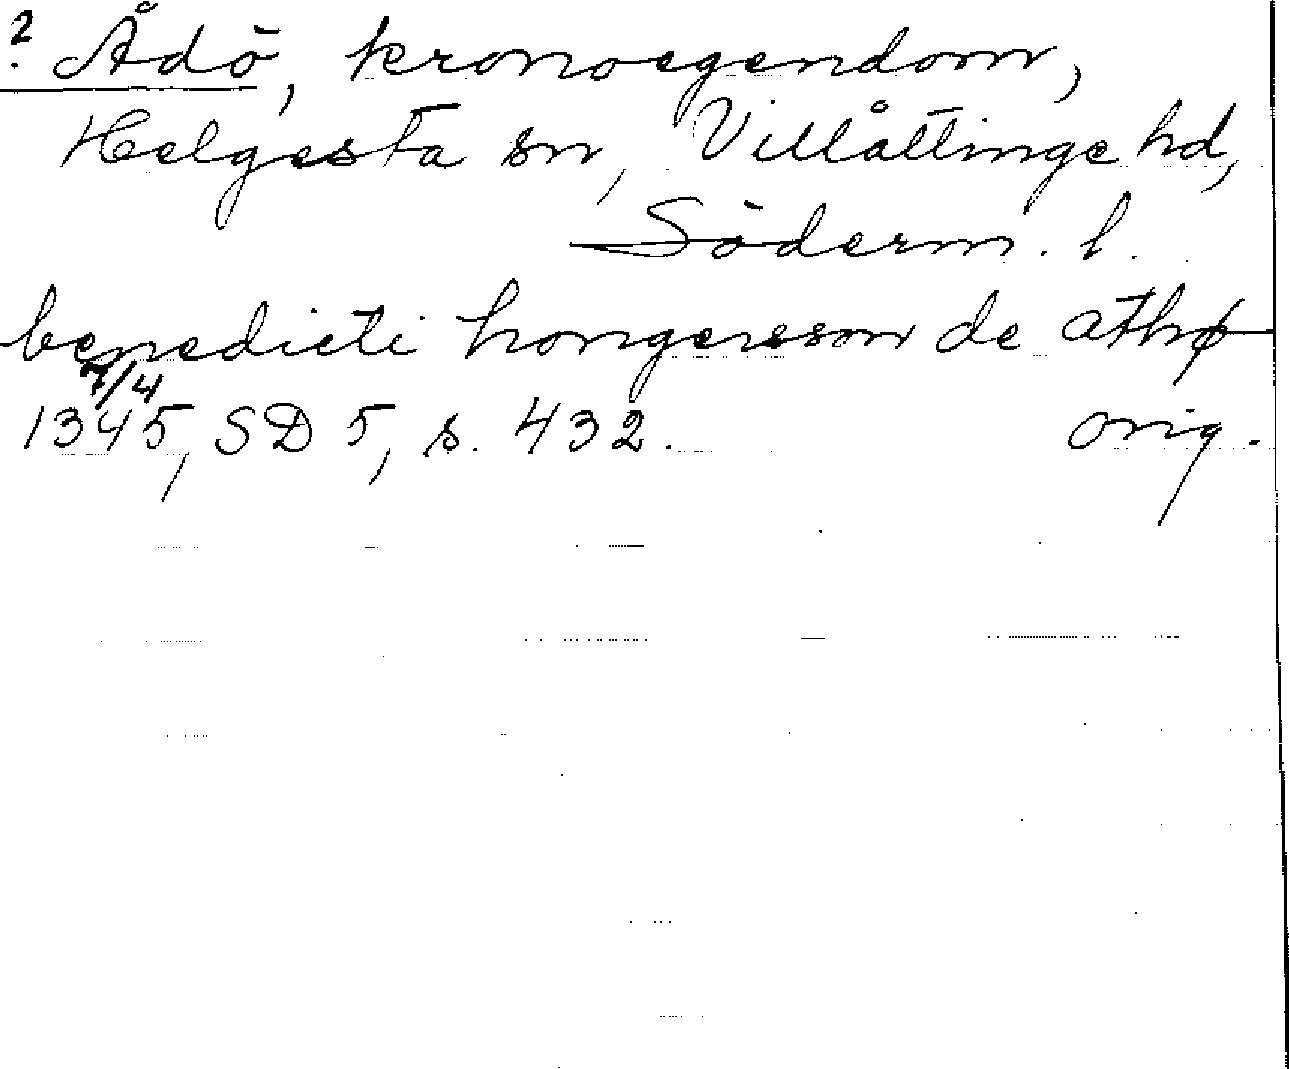 ? Ådö, kronoegendom,
Helgesta sn, Villåttinge hd,
Söderm. l.
benedicti hongersson de athø
7/4
1345, SD 5, s. 432. orig.